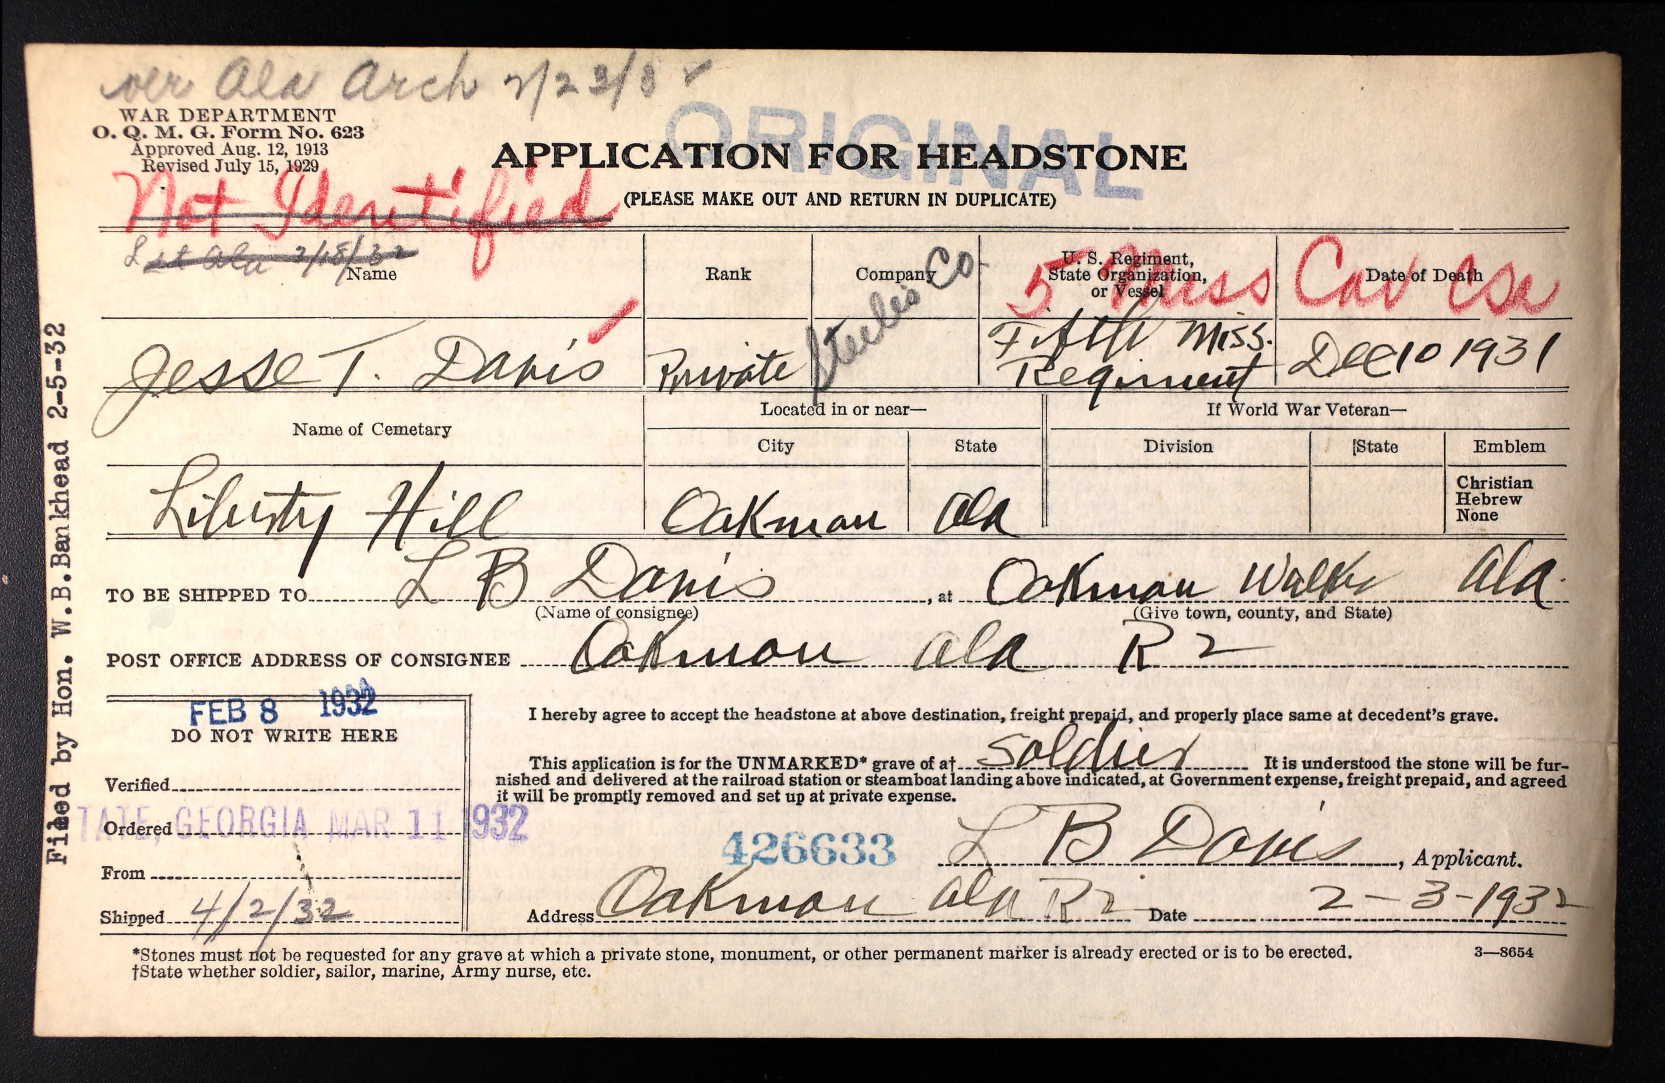 ver Ala Arch 2/23/3
WAR DEPARTMENT
O. Q. M. G. Form No. 623
Approved Aug. 12, 1913
Revised July 15, 1929
ORIGINAL
APPLICATION FOR HEADSTONE
(PLEASE MAKE OUT AND RETURN IN DUPLICATE)
Not Identified
Ala 2/15/32
Name Rank Company U. S. Regiment, State Organization, or Vessel Date of Death
5 Miss Cav CSA
Jesse T. Davis Private Steeles Co Fifth Miss. Regiment Dec 10 1931
Name of Cemetary Located in or near— If World War Veteran—
City State Division State Emblem
Christian
Hebrew
None
Liberty Hill Oakman Ala
TO BE SHIPPED TO L B Davis, at Oakman Walker Ala.
(Name of consignee) (Give town, county, and State)
POST OFFICE ADDRESS OF CONSIGNEE Oakman Ala R 2
Filed by Hon. W.B.Bankhead 2-5-32
FEB 8 1932
DO NOT WRITE HERE
Verified
Ordered
TATE, GEORGIA MAR 11 1932
From
Shipped 4/2/32
I hereby agree to accept the headstone at above destination, freight prepaid, and properly place same at decedent's grave.
This application is for the UNMARKED* grave of a† Soldier It is understood the stone will be fur-
nished and delivered at the railroad station or steamboat landing above indicated, at Government expense, freight prepaid, and agreed
it will be promptly removed and set up at private expense.
426633
L B Davis, Applicant.
Address Oakman Ala R2 Date 2-3-1932
*Stones must not be requested for any grave at which a private stone, monument, or other permanent marker is already erected or is to be erected.
†State whether soldier, sailor, marine, Army nurse, etc.
3—8654